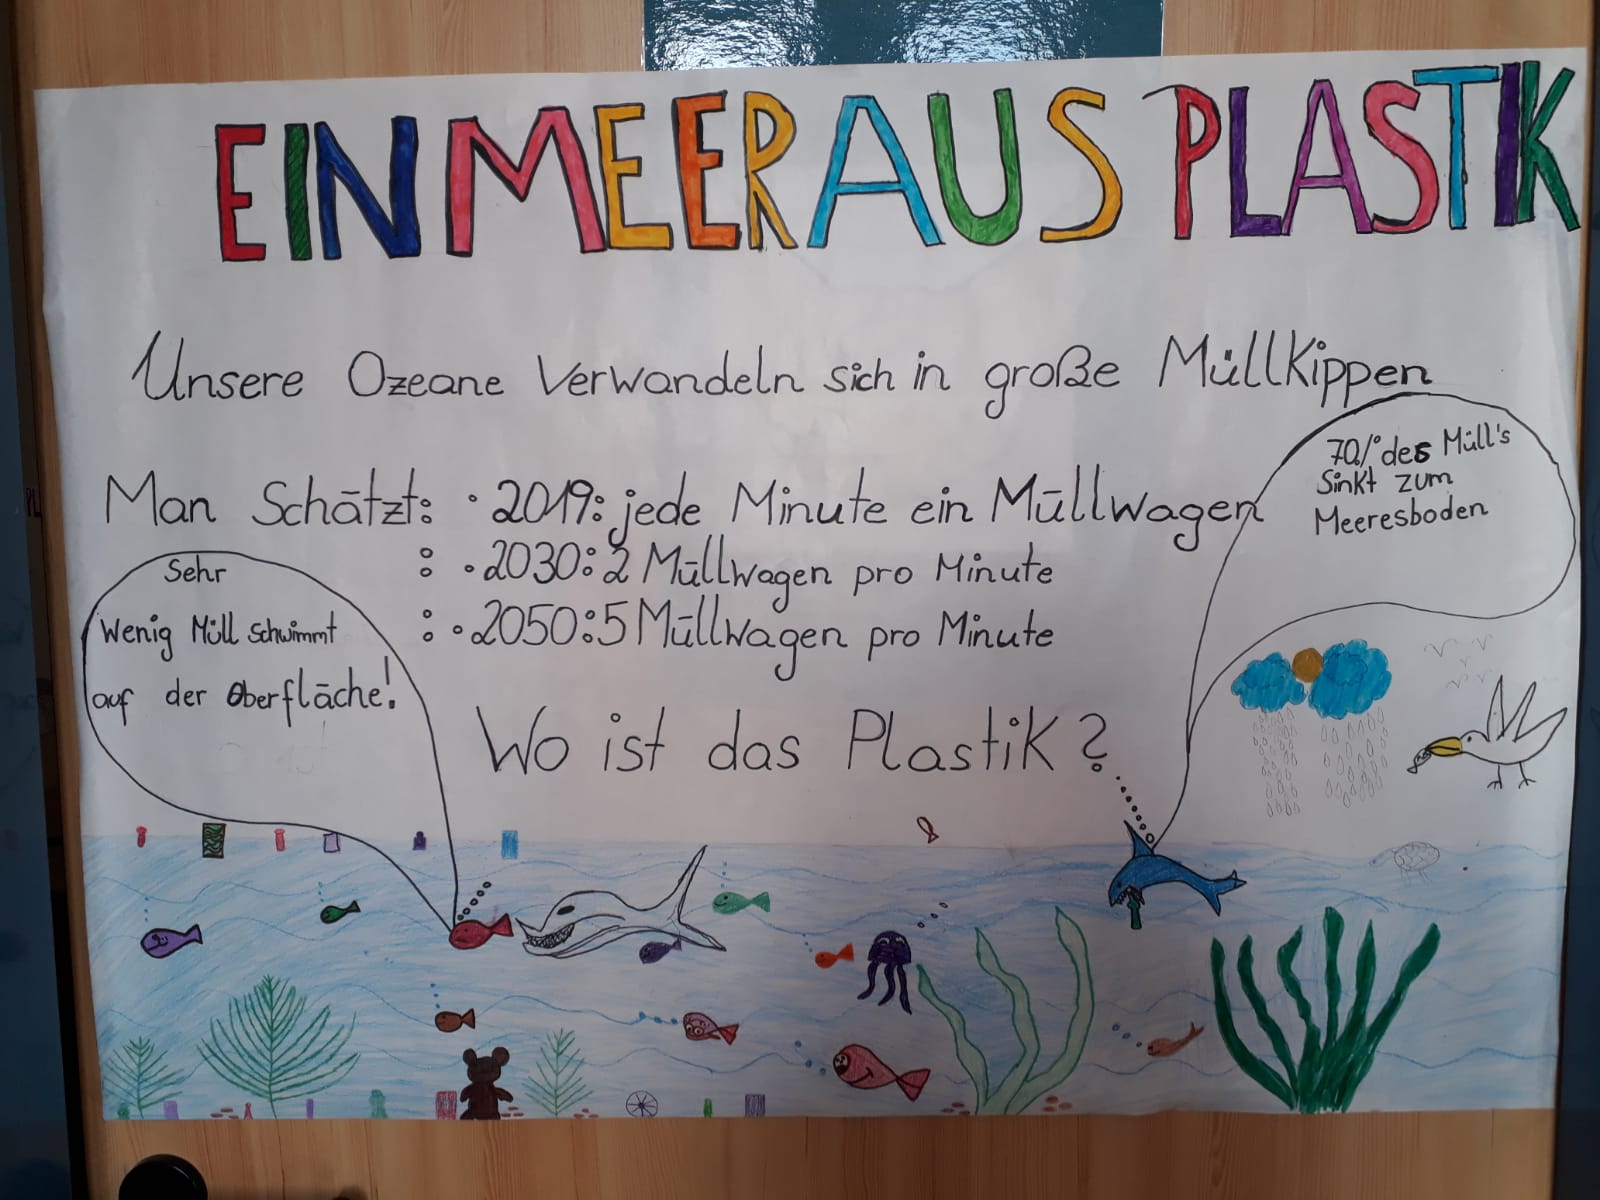 EIN MEER AUS PLASTIK
Unsere Ozeane Verwandeln sich in große MüllKippen
Man Schätzt: • 2019: jede Minute ein Müllwagen
: • 2030: 2 Müllwagen pro Minute
: • 2050: 5 Müllwagen pro Minute
70% des Müll's
Sinkt zum
Meeresboden
Sehr
Wenig Müll Schwimmt
auf der Oberfläche!
Wo ist das PlastiK?